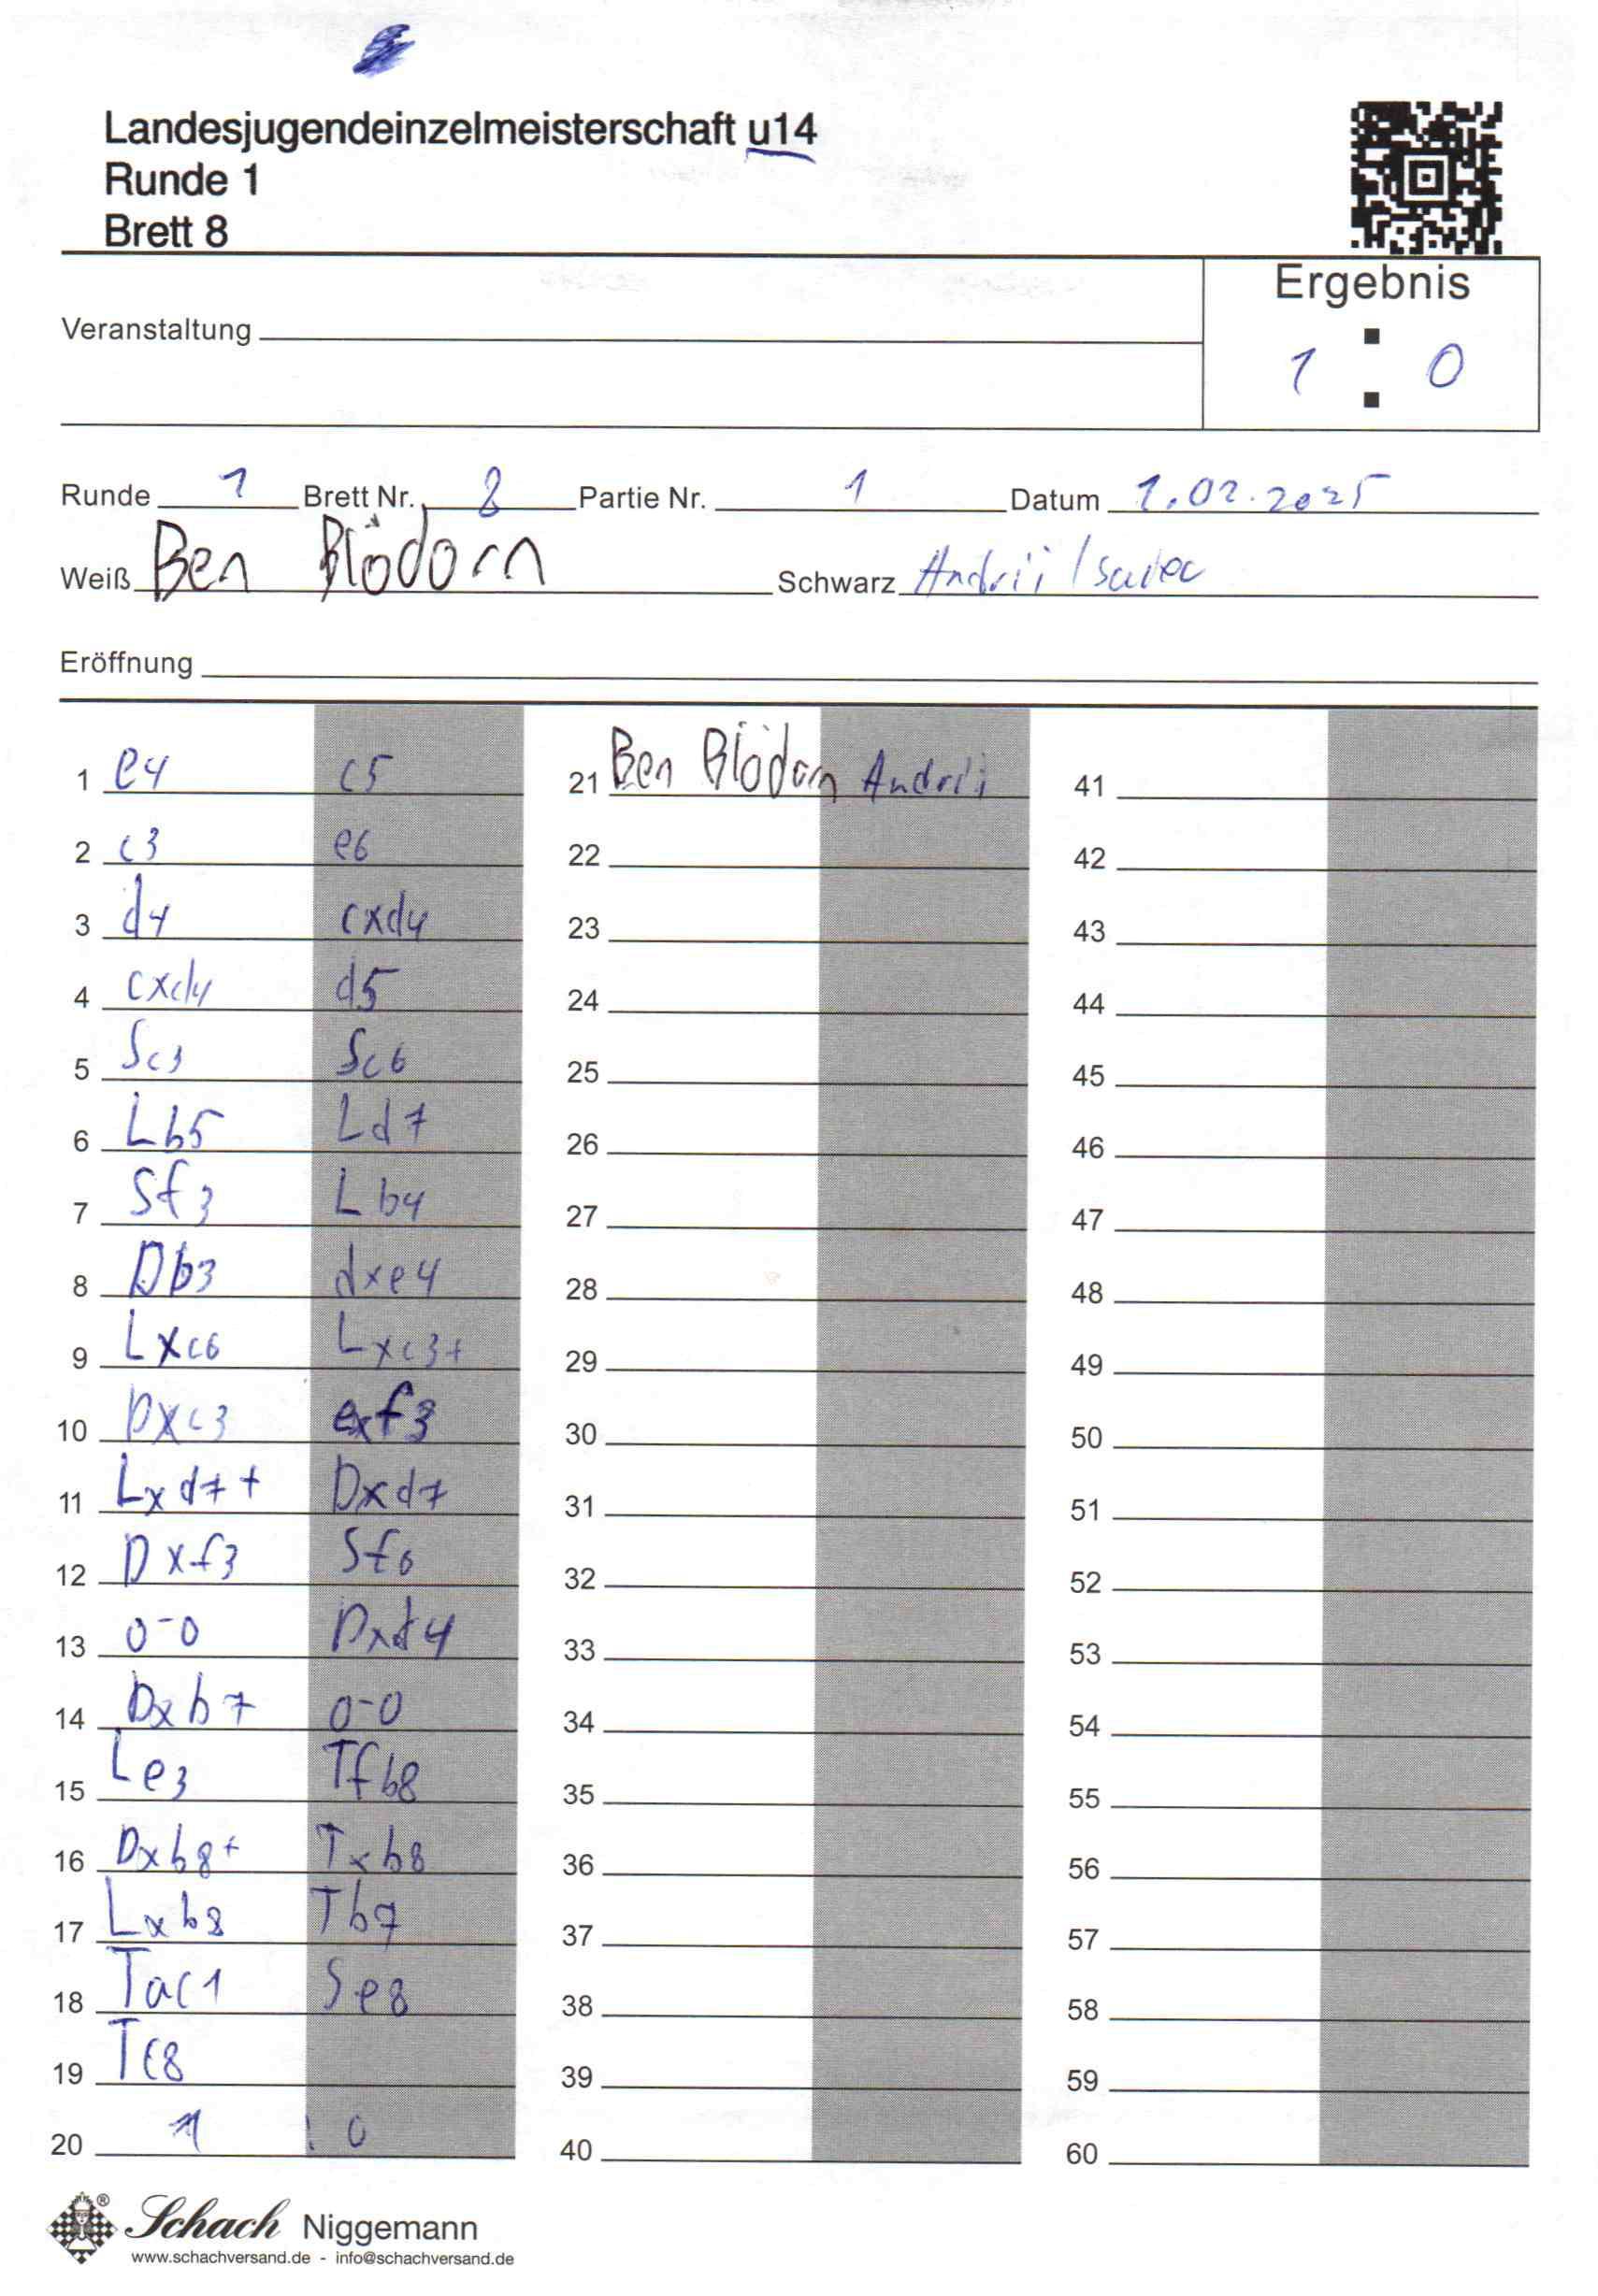 Landesjugendeinzelmeisterschaft u14
Runde 1
Brett 8
Ergebnis
Veranstaltung
1 : 0
Runde 1 Brett Nr. 8 Partie Nr. 1 Datum 1.02.2025
Weiß Ben Blödorn Schwarz Andrii
Eröffnung
1 e4 c5 21 Ben Blödorn Andrii 41
2 c3 e6 22 42
3 d4 cxd4 23 43
4 cxd4 d5 24 44
5 Sc3 Sc6 25 45
6 Lb5 Ld7 26 46
7 Sf3 Lb4 27 47
8 Db3 dxe4 28 48
9 Lxc6 Lxc3+ 29 49
10 Dxc3 exf3 30 50
11 Lxd7+ Dxd7 31 51
12 Dxf3 Sf6 32 52
13 0-0 Dxd4 33 53
14 Dxb7 0-0 34 54
15 Le3 Tfb8 35 55
16 Dxb8+ Txb8 36 56
17 Lxb8 Tb7 37 57
18 Tac1 Se8 38 58
19 Tc8 39 59
20 1 : 0 40 60
Schach Niggemann
www.schachversand.de - info@schachversand.de